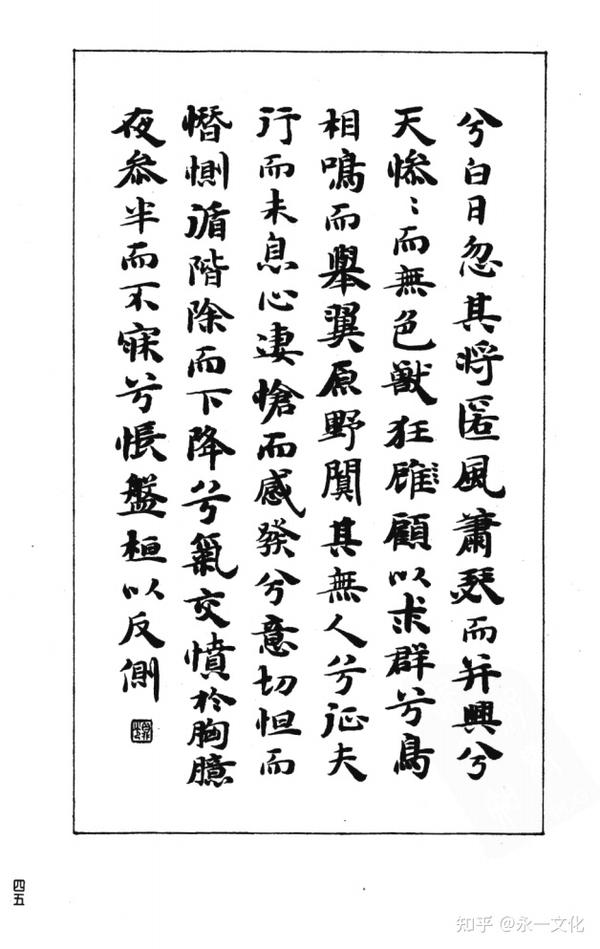 兮白日忽其将匿風蕭瑟而并興兮
天惨〻而無色獸狂顧以求群兮鳥
相鳴而舉翼原野闃其無人兮征夫
行而未息心凄愴而感發兮意切怛而
憯惻循階除而下降兮氣交憤於胸臆
夜叅半而不寐兮悵盤桓以反側
四五
知乎 @永一文化